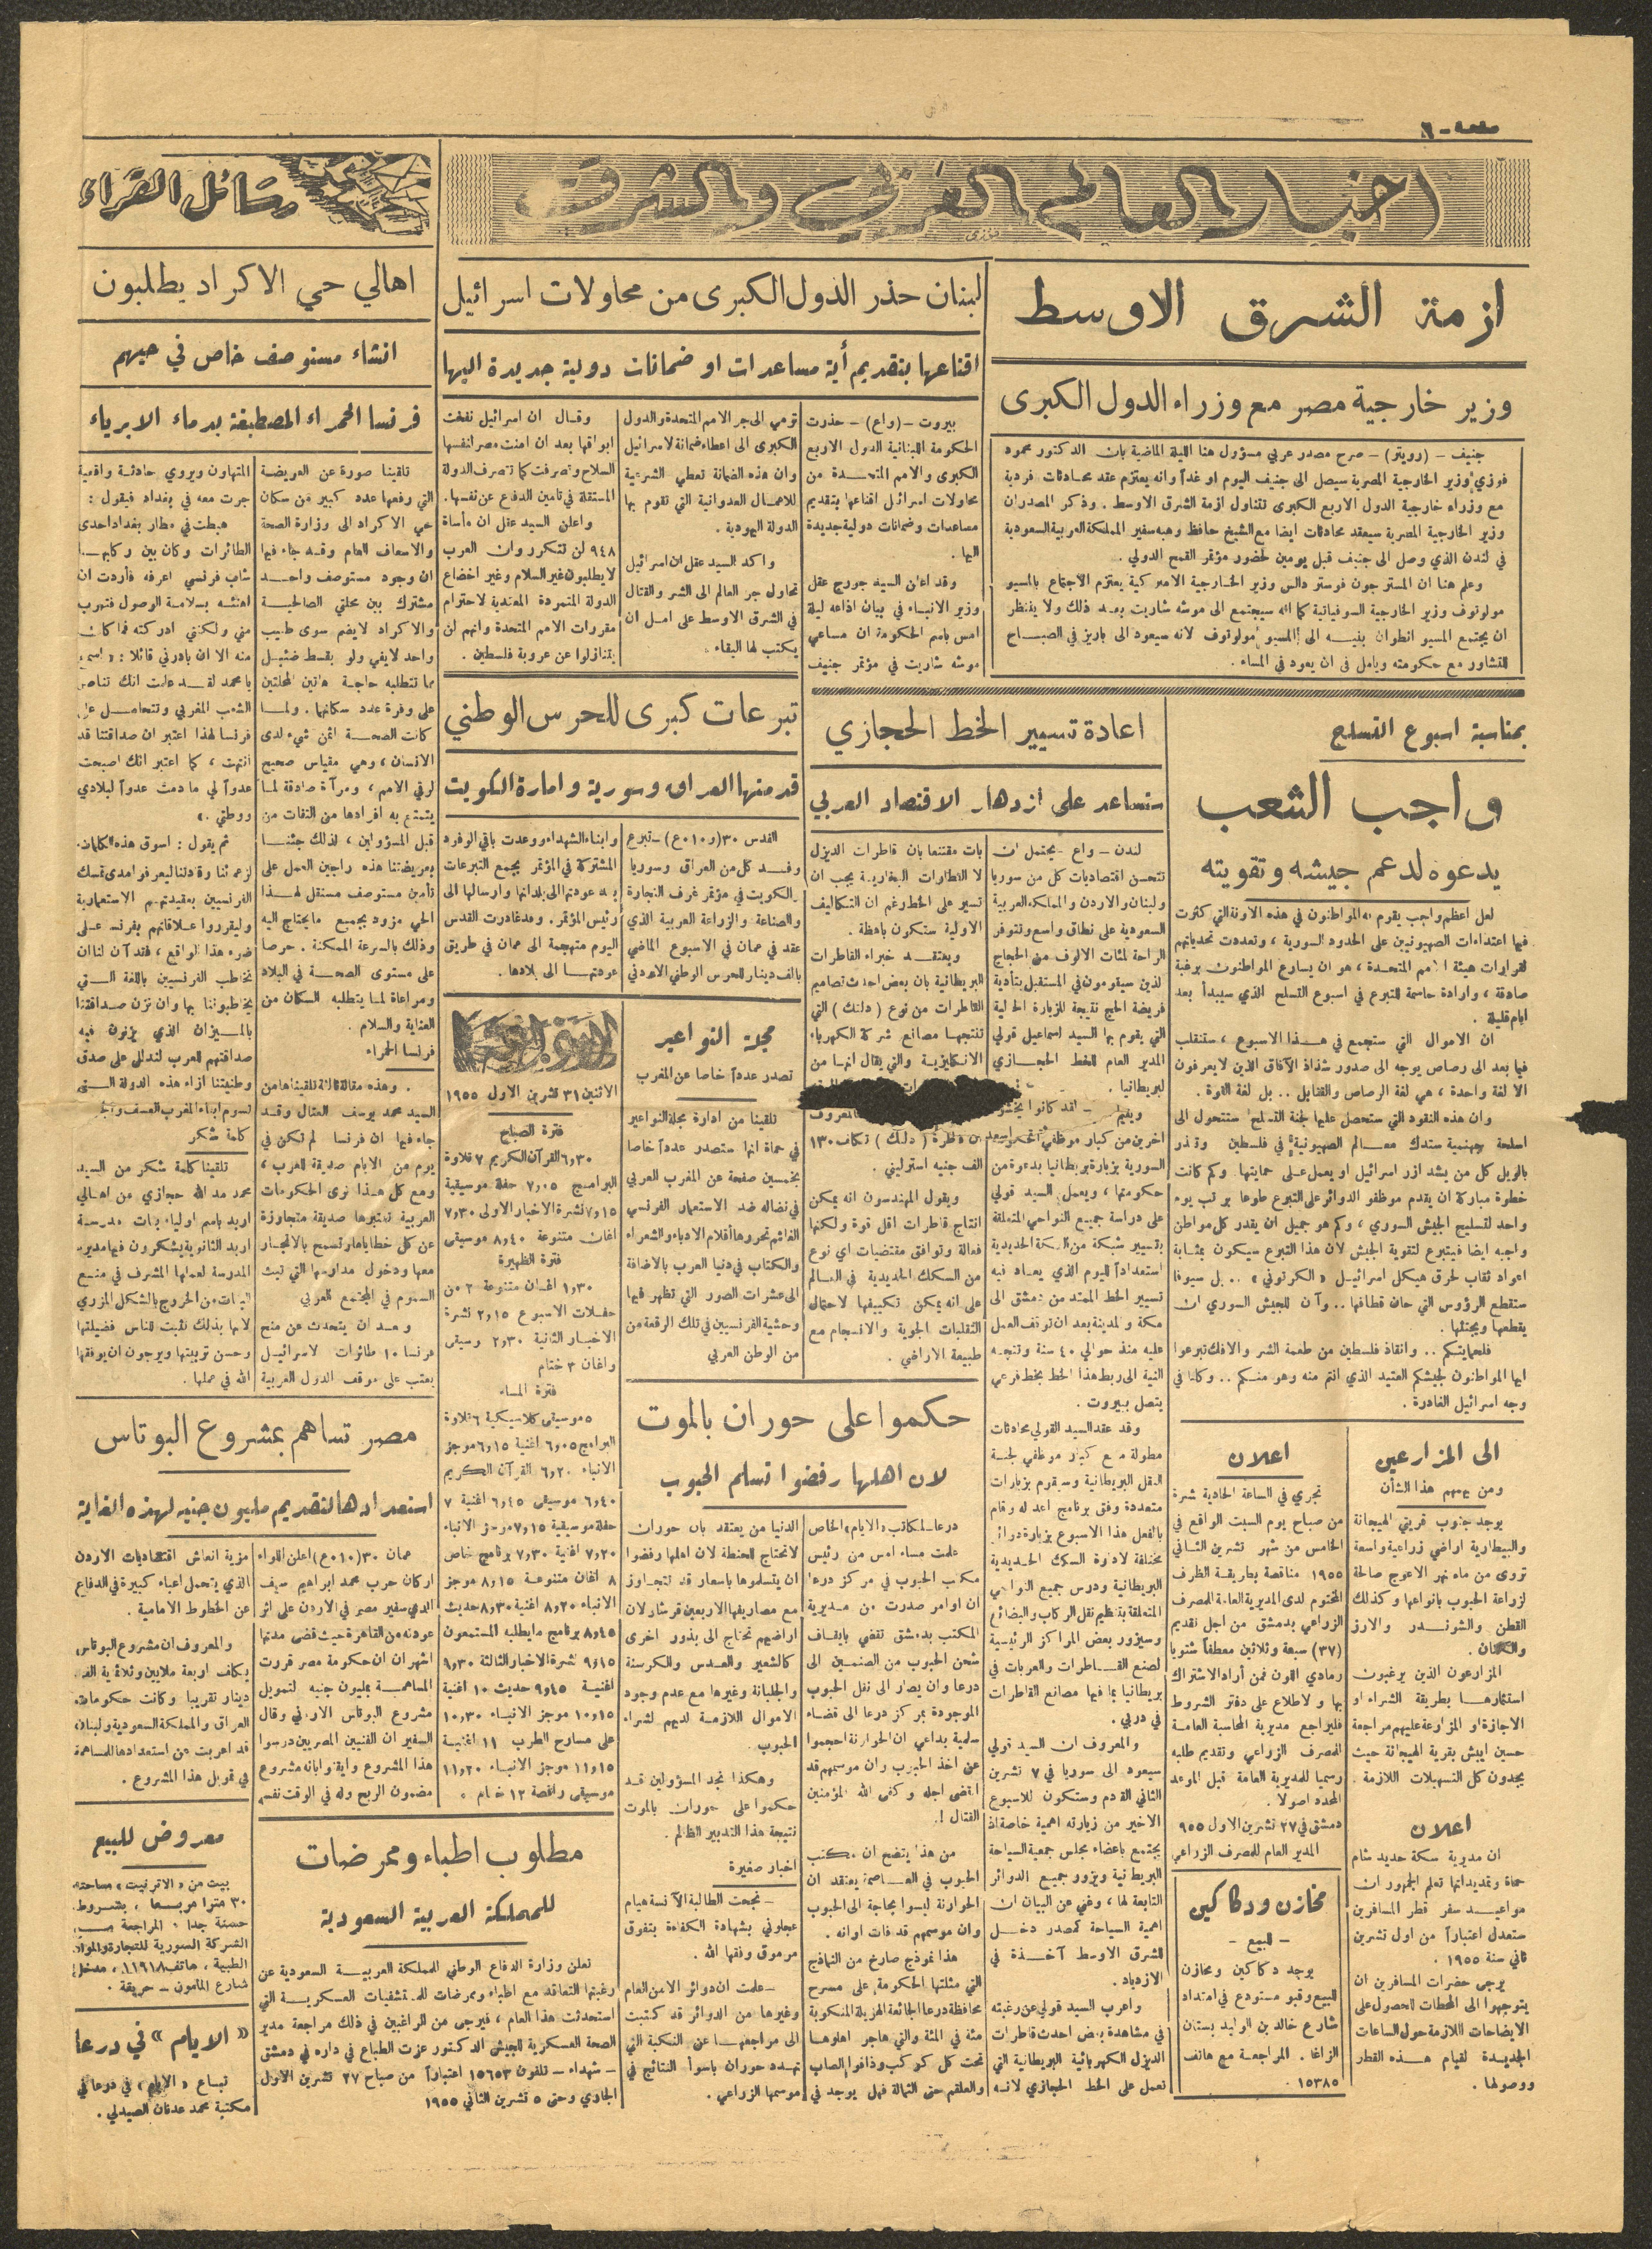 صفحة ـ ٦
اخبار العالم العربي والشرق
رسائل القراء
ازمة الشرق الاوسط
وزير خارجية مصر مع وزراء الدول الكبرى
جنيف – (رويتر) – صرح مصدر عربي مسؤول هنا الليلة الماضية بان الدكتور محمود
فوزي وزير الخارجية المصرية سيصل الى جنيف اليوم او غداً وانه يعتزم عقد محادثات فردية
مع وزراء خارجية الدول الاربع الكبرى تتناول ازمة الشرق الاوسط . وذكر المصدر ان
وزير الخارجية المصرية سيعقد محادثات ايضا مع الشيخ حافظ وهبه سفير المملكة العربية السعودية
في لندن الذي وصل الى جنيف قبل يومين لحضور مؤتمر القمح الدولي .
وعلم هنا ان المستر جون فوستر دالس وزير الخارجية الاميركية يعتزم الاجتماع بالمسيو
مولوتوف وزير الخارجية السوفياتية كما انه سيجتمع الى موشه شاريت بعد ذلك ولا ينتظر
ان يجتمع المسيو انطوان بنيه الى المسيو مولوتوف لانه سيعود الى باريز في الصباح
للتشاور مع حكومته ويأمل في ان يعود في المساء .
لبنان حذر الدول الكبرى من محاولات اسرائيل
اقناعها بتقديم أية مساعدات او ضمانات دولية جديدة اليها
بيروت – (واع) – حذرت
الحكومة اللبنانية الدول الاربع
الكبرى والامم المتحدة من
محاولات اسرائيل اقناعها بتقديم
مساعدات وضمانات دولية جديدة
اليها .
وقد اعلن السيد جورج عقل
وزير الانباء في بيان اذاعه ليلة
امس باسم الحكومة ان مساعي
موشه شاريت في مؤتمر جنيف
ترمي الى جر الامم المتحدة والدول
الكبرى الى اعطاء ضمانة لاسرائيل
وان هذه الضمانة تعطي الشرعية
للاعمال العدوانية التي تقوم بها
الدولة اليهودية .
واكد السيد عقل ان اسرائيل
تحاول جر العالم الى الشر والقتال
في الشرق الاوسط على امل ان
يكتب لها البقاء .
وقال ان اسرائيل نفخت
ابواقها بعد ان امنت مصر لنفسها
السلاح وتصرفت كما تتصرف الدولة
المستقلة في تأمين الدفاع عن نفسها .
واعلن السيد عقل ان مأساة
٩٤٨ لن تتكرر وان العرب
لا يطلبون غير السلام وغير اخضاع
الدولة المتمردة المعتدية لاحترام
مقررات الامم المتحدة وانهم لن
يتنازلوا عن عروبة فلسطين .
اهالي حي الاكراد يطلبون
انشاء مستوصف خاص في حيهم
فرنسا الحمراء المصطبغة بدماء الابرياء
تلقينا صورة عن العريضة
التي رفعها عدد كبير من سكان
حي الاكراد الى وزارة الصحة
والاسعاف العام وقد جاء فيها
ان وجود مستوصف واحد
مشترك بين محلتي الصالحية
والاكراد لا يضم سوى طبيب
واحد لا يفي ولو بقسط ضئيل
مما تتطلبه حاجة هاتين المحلتين
على وفرة عدد سكانها . ولما
كانت الصحة اثمن شيء لدى
الانسان ، وهي مقياس صحيح
لرقي الامم ، ومرآة صادقة لما
يتمتع به افرادها من التفات من
قبل المسؤولين ، لذلك جئنا
بعريضتنا هذه راجين العمل على
تأمين مستوصف مستقل لهذا
الحي مزود بجميع ما يحتاج اليه
وذلك بالسرعة الممكنة . حرصا
على مستوى الصحة في البلاد
ومراعاة لما يتطلبه السكان من
العناية والسلام .
فرنسا الحمراء
وهذه مقالة ثالثة تلقيناها من
السيد محمد يوسف العتال وقد
جاء فيها ان فرنسا لم تكن في
يوم من الايام صديقة للعرب ،
ومع كل هذا نرى الحكومات
العربية تعتبرها صديقة متجاوزة
عن كل خطاياها وتسمح بالاتجار
معها ودخول مدارسها التي تبث
السموم في المجتمع العربي
وبعد ان يتحدث عن منح
فرنسا ١٠ طائرات لاسرائيل
يعتب على موقف الدول العربية
المتهاون ويروي حادثة واقعية
جرت معه في بغداد فيقول :
هبطت في مطار بغداد احدى
الطائرات وكان بين ركابها
شاب فرنسي اعرفه فأردت ان
اهنئه بسلامة الوصول فتهرب
مني ولكنني ادركته فما كان
منه الا ان بادرني قائلا : « اسمع
يا محمد لقد علمت انك تناصر
الشعب المغربي وتتحامل على
فرنسا لهذا اعتبر ان صداقتنا قد
انتهت ، كما اعتبر انك اصبحت
عدواً لي ما دمت عدواً لبلادي
ووطني . »
ثم يقول : اسوق هذه الكلمات
لزعمائنا وقادتنا ليعرفوا مدى تمسك
الفرنسيين بعقيدتهم الاستعمارية
وليقرروا علاقاتهم بفرنسا على
ضوء هذا الواقع ، فقد آن لنا ان
نخاطب الفرنسيين باللغة التي
يخاطبوننا بها وان نزن صداقتنا
بالميزان الذي يزنون فيه
صداقتهم للعرب لندلل على صدق
وطنيتنا ازاء هذه الدولة التي
تسوم ابناء المغرب العسف
كلمة شكر
تلقينا كلمة شكر من السيد
محمد عبد الله حجازي من اهالي
اربد باسم اولياء بنات مدرسة
اربد الثانوية يشكرون فيها مديرة
المدرسة لعملها المشرف في منع
البنات من الخروج بالشكل المزري
لانها بذلك تثبت للناس فضيلتها
وحسن تربيتها ويرجون ان يوفقها
الله في عملها .
بمناسبة اسبوع التسلح
واجب الشعب
يدعوه لدعم جيشه وتقويته
لعل أعظم واجب يقوم به المواطنون في هذه الاونة التي كثرت
فيها اعتداءات الصهيونيين على الحدود السورية ، وتعددت تحدياتهم
لقرارات هيئة الامم المتحدة ، هو ان يسارع المواطنون برغبة
صادقة ، وارادة حاسمة للتبرع في اسبوع التسلح الذي سيبدأ بعد
ايام قليلة .
ان الاموال التي ستجمع في هذا الاسبوع ، ستنقلب
فيما بعد الى رصاص يوجه الى صدور شذاذ الآفاق الذين لا يعرفون
الا لغة واحدة ، هي لغة الرصاص والقنابل .. بل لغة القوة .
وان هذه النقود التي ستحصل عليها لجنة التسلح ستتحول الى
اسلحة جهنمية ستدك معالم الصهيونية في فلسطين وتنذر
بالويل كل من يشد ازر اسرائيل او يعمل على حمايتها وكم كانت
خطوة مباركة ان يقدم موظفو الدوائر على التبرع طوعا براتب يوم
واحد لتسليح الجيش السوري ، وكم هو جميل ان يقدر كل مواطن
واجبه ايضا فيتبرع لتقوية الجيش لان هذا التبرع سيكون بمثابة
اعواد ثقاب لحرق هيكل اسرائيل « الكرتوني » .. بل سيوفا
ستقطع الرؤوس التي حان قطافها .. وآن للجيش السوري ان
يقطعها ويجتثها .
فلحمايتكم .. وانقاذ فلسطين من طغمة الشر والافك تبرعوا
ايها المواطنون لجيشكم العتيد الذي انتم منه وهو منكم .. وكلنا في
وجه اسرائيل الغادرة .
اعادة تسيير الخط الحجازي
ستساعد على ازدهار الاقتصاد العربي
لندن – واع – يحتمل ان
تتحسن اقتصاديات كل من سوريا
ولبنان والاردن والمملكة العربية
السعودية على نطاق واسع وتتوفر
الراحة لمئات الالوف من الحجاج
الذين سيقومون في المستقبل بتأدية
فريضة الحج نتيجة للزيارة الحالية
التي يقوم بها السيد اسماعيل قولي
المدير العام للخط الحجازي
لبريطانيا .
ويقيم
اخرين من كبار موظفي
السورية بزيارة بريطانيا بدعوة من
حكومتها ، ويعمل السيد قولي
على دراسة جميع النواحي المتعلقة
بتسيير شبكة من السكة الحديدية
استعداداً لليوم الذي يعاد فيه
تسيير الخط الممتد من دمشق الى
مكة والمدينة بعد ان توقف العمل
عليه منذ حوالي ٤٠ سنة وتتجه
النية الى ربط هذا الخط بخط فرعي
يتصل ببيروت .
وقد عقد السيد القولي محادثات
مطولة مع كبار موظفي لجنة
النقل البريطانية وسيقوم بزيارات
متعددة وفق برنامج اعد له وقام
بالفعل هذا الاسبوع بزيارة دوائر
مختلفة لادارة السكك الحديدية
البريطانية ودرس جميع النواحي
المتعلقة بتنظيم نقل الركاب والبضائع
وسيزور بعض المراكز الرئيسية
لصنع القاطرات والعربات في
بريطانيا بما فيها مصانع القاطرات
في دربي .
والمعروف ان السيد قولي
سيعود الى سوريا في ٧ تشرين
الثاني القادم وستكون للاسبوع
الاخير من زيارته اهمية خاصة اذ
يجتمع باعضاء مجلس جمعية السياحة
البريطانية ويزور جميع الدوائر
التابعة لها ، وغني عن البيان ان
اهمية السياحة كمصدر دخل
للشرق الاوسط آخذة في
الازدياد .
واعرب السيد قولي عن رغبته
في مشاهدة بعض احدث قاطرات
الديزل الكهربائية البريطانية التي
تعمل على الخط الحجازي لانه
بات مقتنعا بان قاطرات الديزل
لا القطارات البخارية يجب ان
تسير على الخط رغم ان التكاليف
الاولية ستكون باهظة .
ويعتقد خبراء القاطرات
البريطانية بان بعض احدث تصاميم
القاطرات من نوع ( دلتك ) التي
تنتجها مصانع شركة الكهرباء
الانكليزية والتي يقال انها من
والمعروف
ان قاطرة ( دلتك ) تكلف ١٣٠
الف جنيه استرليني .
ويقول المهندسون انه يمكن
انتاج قاطرات اقل قوة ولكنها
فعالة وتوافق مقتضيات اي نوع
من السكك الحديدية في العالم
على انه يمكن تكييفها لاحتمال
التقلبات الجوية والانسجام مع
طبيعة الاراضي .
تبرعات كبرى للحرس الوطني
قدمتها العراق وسورية وامارة الكويت
القدس ٣٠ (و٠١٠ع) – تبرع
وفد كل من العراق وسوريا
والكويت في مؤتمر غرف التجارة
والصناعة والزراعة العربية الذي
عقد في عمان في الاسبوع الماضي
بالف دينار للحرس الوطني الاردني
وابناء الشهداء ووعدت باقي الوفود
المشتركة في المؤتمر بجمع التبرعات
بعد عودتها الى بلدانها وارسالها الى
رئيس المؤتمر . وقد غادرت القدس
اليوم متجهة الى عمان في طريق
عودتها الى بلادها .
مجلة النواعير
تصدر عدداً خاصا عن المغرب
تلقينا من ادارة مجلة النواعير
في حماة انها ستصدر عدداً خاصا
بخمسين صفحة عن المغرب العربي
في نضاله ضد الاستعمار الفرنسي
الغاشم تحررها أقلام الادباء والشعراء
والكتاب في دنيا العرب بالاضافة
الى عشرات الصور التي تظهر فيها
وحشية الفرنسيين في تلك الرقعة من
من الوطن العربي
الاثنين ٣١ تشرين الاول ١٩٥٥
فترة الصباح
٦،٣٠ القرآن الكريم ٧ تلاوة
البرامج ٧،٠٥ حفلة موسيقية
٧،١٥ نشرة الاخبار الاولى ٧،٣٠
اغان متنوعة ٨،٤٠ موسيقى
فترة الظهيرة
١،٣٠ اغان متنوعة ٢ من
حفلات الاسبوع ٢،١٥ نشرة
الاخبار الثانية ٢،٣٠ موسيقى
واغان ٣ ختام
فترة المساء
٥ موسيقى كلاسيكية ٦ تلاوة
البرامج ٦،٠٥ اغنية ٦،١٥ موجز
الانباء ٦،٢٠ القرآن الكريم
٦،٤٠ موسيقى ٦،٤٥ اغنية ٧
حفلة موسيقية ٧،١٥ موجز الانباء
٧،٢٠ اغنية ٧،٣٠ برنامج خاص
٨ اغان متنوعة ٨،١٥ موجز
الانباء ٨،٢٠ اغنية ٨،٣٠ حديث
٨،٤٥ برنامج ما يطلبه المستمعون
٩،١٥ نشرة الاخبار الثالثة ٩،٣٠
اغنية ٩،٤٥ حديث ١٠ اغنية
١٠،١٥ موجز الانباء ١٠،٣٠
على مسارح الطرب ١١ اغنية
١١،١٥ موجز الانباء ١١،٢٠
موسيقى راقصة ١٢ ختام .
حكموا على حوران بالموت
لان اهلها رفضوا تسلم الحبوب
درعا – لمكاتب « الايام » الخاص
علمت مساء امس من رئيس
مكتب الحبوب في مركز درعا
ان اوامر صدرت من مديرية
المكتب بدمشق تقضي بايقاف
شحن الحبوب من الصنمين الى
درعا وان يصار الى نقل الحبوب
الموجودة بمركز درعا الى قضاء
سلمية بداعي ان الحوارنة احجموا
عن اخذ الحبوب وان موسمهم قد
انقضى اجله وكفى الله المؤمنين
القتال !.
من هذا يتضح ان مكتب
الحبوب في العاصمة يعتقد ان
الحوارنة ليسوا بحاجة الى الحبوب
وان موسمهم قد فات اوانه .
هذا نموذج صارخ من النماذج
التي مثلتها الحكومة على مسرح
محافظة درعا الجائعة الهزيلة المنكوبة
مئة في المئة والتي هاجر اهلوها
تحت كل كوكب وذاقوا الصاب
والعلقم حتى الثمالة فهل يوجد في
الدنيا من يعتقد بان حوران
لا تحتاج للحنطة لان اهلها رفضوا
ان يتسلموها باسعار قد تتجاوز
مع مصاريفها الاربعين قرشا ولان
اراضيهم تحتاج الى بذور اخرى
كالشعير والعدس والكرسنة
والجلبانة وغيرها مع عدم وجود
الاموال اللازمة لديهم لشراء
الحبوب .
وهكذا نجد المسؤولين قد
حكموا على حوران بالموت
نتيجة هذا التدبير الظالم .
اخبار صغيرة
– نجحت الطالبة الآنسة هيام
عجلوني بشهادة الكفاءة بتفوق
مرموق وفقها الله .
– علمت ان دوائر الامن العام
وغيرها من الدوائر قد كتبت
الى مراجعها عن النكبة التي
تهدد حوران باسوأ النتائج في
موسمها الزراعي .
مصر تساهم بمشروع البوتاس
استعدادها لتقديم مليون جنيه لهذه الغاية
عمان ٣٠ (و٠١٠ع) اعلن اللواء
اركان حرب محمد ابراهيم سيف
الدين سفير مصر في الاردن على اثر
عودته من القاهرة حيث قضى مدتها
اشهر ان ان حكومة مصر قررت
المساهمة بمليون جنيه لتمويل
مشروع البوتاس الاردني وقال
السفير ان الفنيين المصريين درسوا
هذا المشروع واتفقوا بانه مشروع
مضمون الربح وله في الوقت نفسه
مزية انعاش اقتصاديات الاردن
الذي يتحمل اعباء كبيرة في الدفاع
عن الخطوط الامامية .
والمعروف ان مشروع البوتاس
يكلف اربعة ملايين وثلاثمئة الف
دينار تقريبا وكانت حكومات
العراق والمملكة السعودية ولبنان
قد اعربت عن استعدادها للمساهمة
في تمويل هذا المشروع .
مطلوب اطباء وممرضات
للمملكة العربية السعودية
تعلن وزارة الدفاع الوطني للمملكة العربية السعودية عن
رغبتها التعاقد مع اطباء وممرضات للمستشفيات العسكرية التي
استحدثت هذا العام ، فيرجى من الراغبين في ذلك مراجعة مدير
الصحة العسكرية للجيش الدكتور عزت الطباع في داره في دمشق
– شهداء – تلفون ١٥٦٥٣ اعتباراً من صباح ٢٧ تشرين الاول
الجاري وحتى ٥ تشرين الثاني ١٩٥٥
معروض للبيع
بيت من « الاترنيت » مساحته
٣٠ مترا مربعا ، بشروط
حسنة جدا . المراجعة
الشركة السورية للتجارة والمواد
الطبية ، هاتف ١١٩١٨ ، مدخل
شارع المأمون – حريقة .
« الايام » في درعا
تباع « الايام » في درعا في
مكتبة محمد عدنان الصيدلي .
الى المزارعين
ومن يهمهم هذا الشأن
يوجد جنوب قريتي الهيجانة
والبيطارية اراضي زراعية واسعة
تروى من ماء نهر الاعوج صالحة
لزراعة الحبوب بانواعها وكذلك
القطن والشوندر والارز
والكتان .
المزارعون الذين يرغبون
استثمارها بطريقة الشراء او
الاجازة او المزارعة عليهم مراجعة
حسين ايبش بقرية الهيجانة حيث
يجدون كل التسهيلات اللازمة .
اعلان
ان مديرية سكة حديد شام
حماة وتمديداتها تعلم الجمهور ان
مواعيد سفر قطر المسافرين
ستعدل اعتباراً من اول تشرين
ثاني سنة ١٩٥٥ .
يرجى حضرات المسافرين ان
يتوجهوا الى المحطات للحصول على
الايضاحات اللازمة حول الساعات
الجديدة لقيام هذه القطر
ووصولها .
اعلان
تجري في الساعة الحادية عشرة
من صباح يوم السبت الواقع في
الخامس من شهر تشرين الثاني
١٩٥٥ مناقصة بطريقة الظرف
المختوم لدى المديرية العامة للمصرف
الزراعي بدمشق من اجل تقديم
(٣٧) سبعة وثلاثين معطفاً شتويا
رمادي اللون فمن أراد الاشتراك
بها والاطلاع على دفتر الشروط
فليراجع مديرية المحاسبة العامة
للمصرف الزراعي وتقديم طلبه
رسميا للمديرية العامة قبل الموعد
المحدد اصولا .
دمشق في ٢٧ تشرين الاول ٩٥٥
المدير العام للمصرف الزراعي
مخازن ودكاكين
– للبيع –
يوجد دكاكين ومخازن
للبيع وقبو مستودع في امتداد
شارع خالد بن الوليد بستان
الزاغا . المراجعة مع هاتف
١٥٣٨٥ .